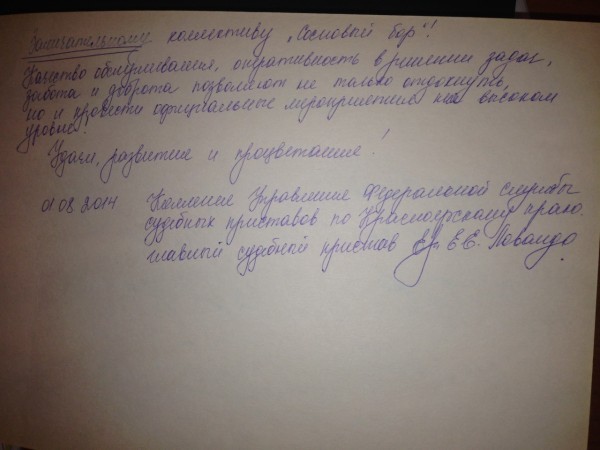 Замечательному коллективу „Сосновый бор"!
Качество обслуживания, оперативность в решении задач,
забота и доброта позволяют не только отдохнуть,
но и провести официальные мероприятия на высоком
уровне!
Удачи, развития и процветания!
01.08.2014 Коллектив Управления Федеральной службы
судебных приставов по Красноярскому краю.
главный судебный пристав Е.Е. Поваляо